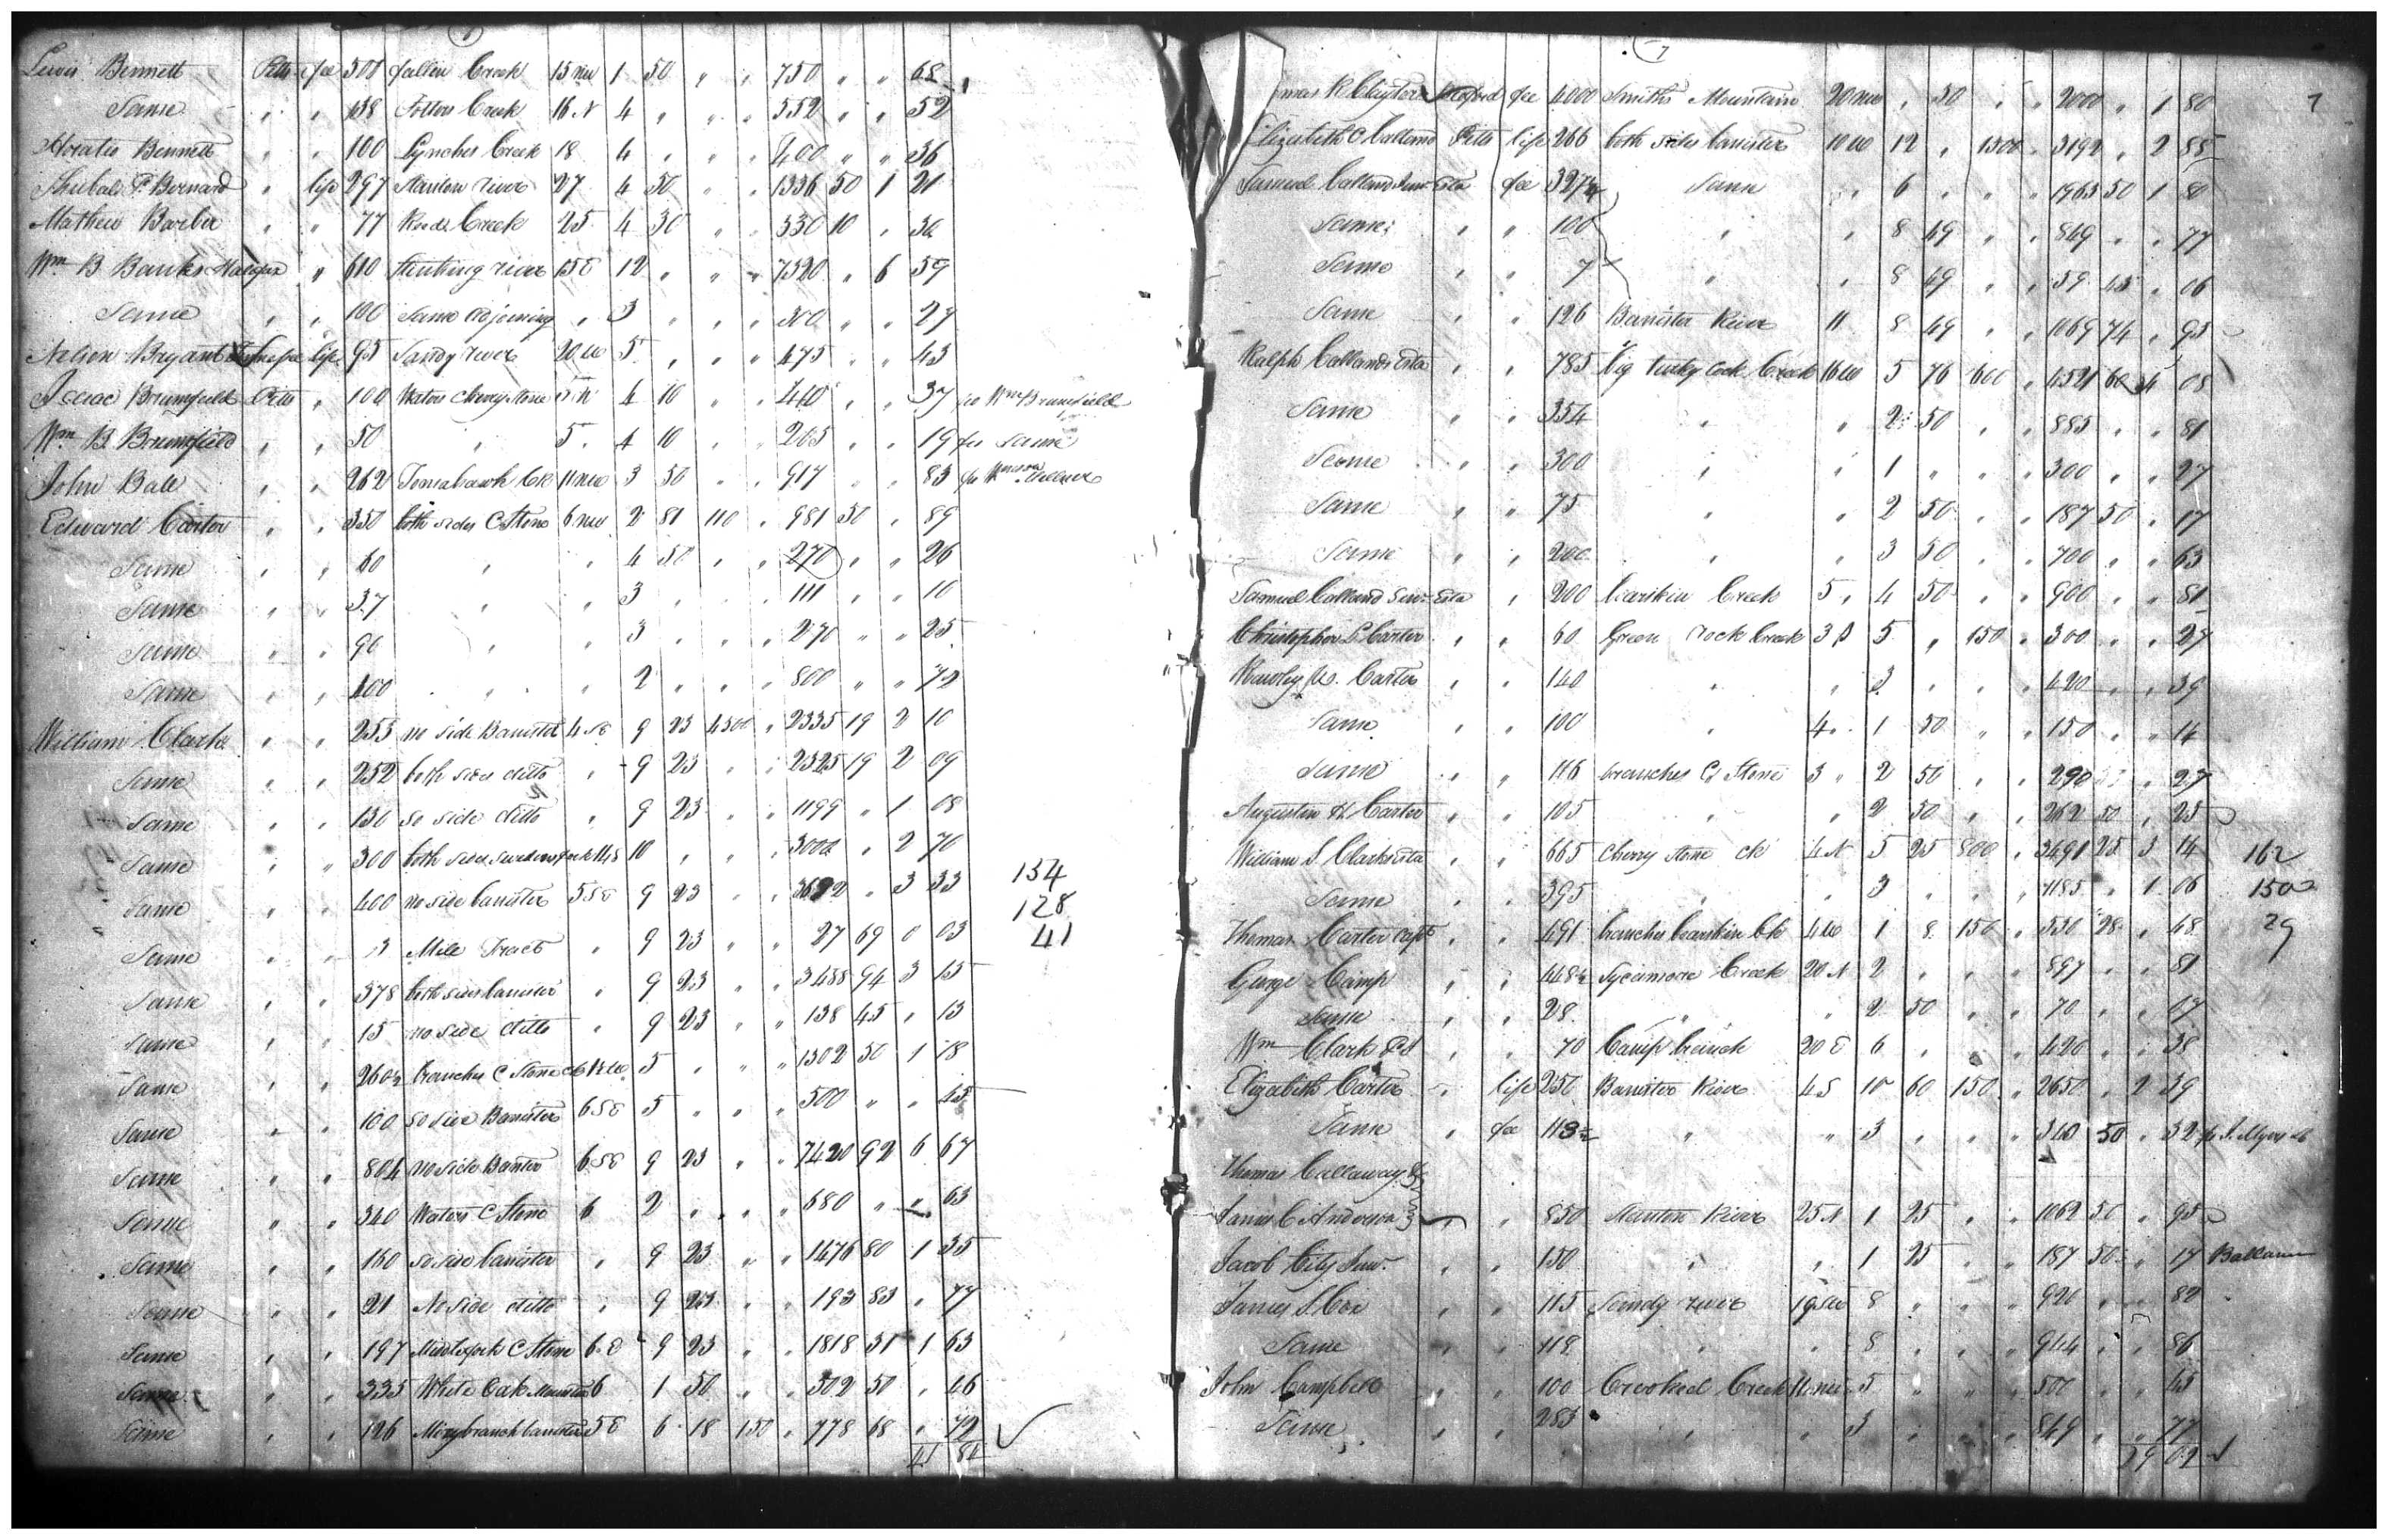 6
Lewis Bennett Pitts fee 500 fallen Creek 15 NW 1 50 " " 750 " " 68
Same " " 138 Potters Creek 16 N 4 " " " 552 " " 52
Horatio Bennett " " 100 Lynches Creek 18 4 " " " 400 " " 36
Shubal F Bernard " life 297 Stanton river 27 4 50 " " 1336 50 1 21
Mathew Barber " " 77 Reeds Creek 25 4 30 " " 330 10 " 30
Wm B Banks Halifax " 610 Stinking river 15 E 12 " " " 7320 " 6 59
Same " " 100 Same adjoining " 3 " " " 300 " " 27
Nelson Bryant life 95 Sandy river 20 W 5 " " " 475 " " 43
Isaac Brumfield Pitts " 100 Waters cherry stone 5 N 4 10 " " 410 " " 37 for Wm Brumfield
Wm B. Brumfield " " 50 " 5 " 4 10 " " 205 " " 19 for Same
John Bale " " 262 Tomahawk Ck 11 NW 3 50 " " 917 " " 83
Edward Carter " " 350 both sides C Stone 6 NW 2 81 110 " 981 50 " 89
Same " " 60 " " 4 50 " " 270 " " 26
Same " " 37 " " 3 " " " 111 " " 10
Same " " 90 " " 3 " " " 270 " " 25
Same " " 400 " " 2 " " " 800 " " 72
William Clark " " 253 no side Banister 4 SE 9 23 4300 " 2335 19 2 10
Same " " 252 both sides ditto " 9 23 " " 2325 19 2 09
Same " " 130 so side ditto " 9 23 " " 1199 " 1 08
Same " " 300 both sides 10 " " " 3000 " 2 70
Same " " 400 no side banister 5 SE 9 23 " " 3692 " 3 33 154
128
Same " " 3 Mile Tract " 9 23 " " 27 69 0 03 41
Same " " 378 both sides banister " 9 23 " " 3488 94 3 15
Same " " 15 no side ditto " 9 23 " " 138 45 " 13
Same " " 260½ branches C Stone 5 " " " 1302 50 1 18
Same " " 100 so side Banister 6 SE 5 " " " 500 " " 45
Same " " 804 no side Banister 6 SE 9 23 " " 7420 92 6 67
Same " " 340 Waters C Stone 6 2 " " " 680 " " 63
Same " " 160 so side banister " 9 23 " " 1476 80 1 35
Same " " 21 No side ditto " 9 23 " " 193 83 " 77
Same " " 197 Middle fork C Stone 6 E 9 23 " " 1818 31 1 63
Same " " 335 White Oak Mountain 6 1 50 " " 502 50 " 46
Same " " 126 Mirey branch banister 5 E 6 18 150 " 778 68 " 72
41 84
7
7
R Clayton Bedford fee 4000 Smiths Mountain 20 NW " 50 " " 2000 " 1 80
Elizabeth C Calland Pitts life 266 both sides banister 10 W 12 " 1500 " 3192 " 2 88
Samuel Calland Junr Esta fee 327¼ Same " 6 " " " 1963 50 1 80
Same " " 100 " " 8 49 " " 849 " " 77
Same " " 7 " " 8 49 " " 59 43 " 06
Same " " 126 Banister River 11 8 49 " " 1069 74 " 95
Ralph Callands Esta " " 785 big turkey Cock Creek 16 W 5 76 600 " 4521 60 4 08
Same " " 354 " " 2 50 " " 885 " " 81
Same " " 300 " " 1 " " " 300 " " 27
Same " " 75 " " 2 50 " " 187 50 " 17
Same " " 200 " " 3 50 " " 700 " " 63
Samuel Calland Senr Esta " 200 bearskin Creek 5 " 4 50 " " 900 " " 81
Christopher L Carter " " 60 Green rock Creek 3 5 " 150 " 300 " " 27
Carter " " 140 " " 3 " " " 420 " " 39
Same " " 100 " 4 " 1 50 " " 150 " " 14
Same " " 116 branches C Stone 3 " 2 50 " " 290 " " 27
Augustin H Carter " " 105 " " 2 50 " " 262 50 " 25
William S Clarks Esta " " 665 Cherry Stone ck 4 N 5 25 800 " 3491 25 3 14 162
Same " " 395 " " 3 " " " 1185 " 1 06 150
Thomas Carter Capt " " 491 branches bearskin Ck 4 W 1 8 150 " 530 28 " 48 29
George Camp " " 448½ Sycamore Creek 20 N 2 " " " 897 " " 81
Same " " 28 " " 2 50 " " 70 " " 07
Wm Clark " " 70 Camp branch 20 E 6 " " " 420 " " 38
Elizabeth Carter " life 250 Banister River 4 S 10 60 150 " 2650 " 2 39
Same " fee 113½ " " 3 " " " 340 50 " 32
Thomas Callaway &
James C Anderson " " 850 Stanton River 25 N 1 25 " " 1062 50 " 95
Jacob City Junr " " 150 " " 1 25 " " 187 50 " 17
James S Cox " " 115 Sandy river 19 SW 8 " " " 920 " " 82
Same " " 118 " " 8 " " " 944 " " 86
John Campbell " " 100 Crooked Creek 11 NW 5 " " " 500 " " 45
Same " " 283 " " 3 " " " 849 " " 77
29 02